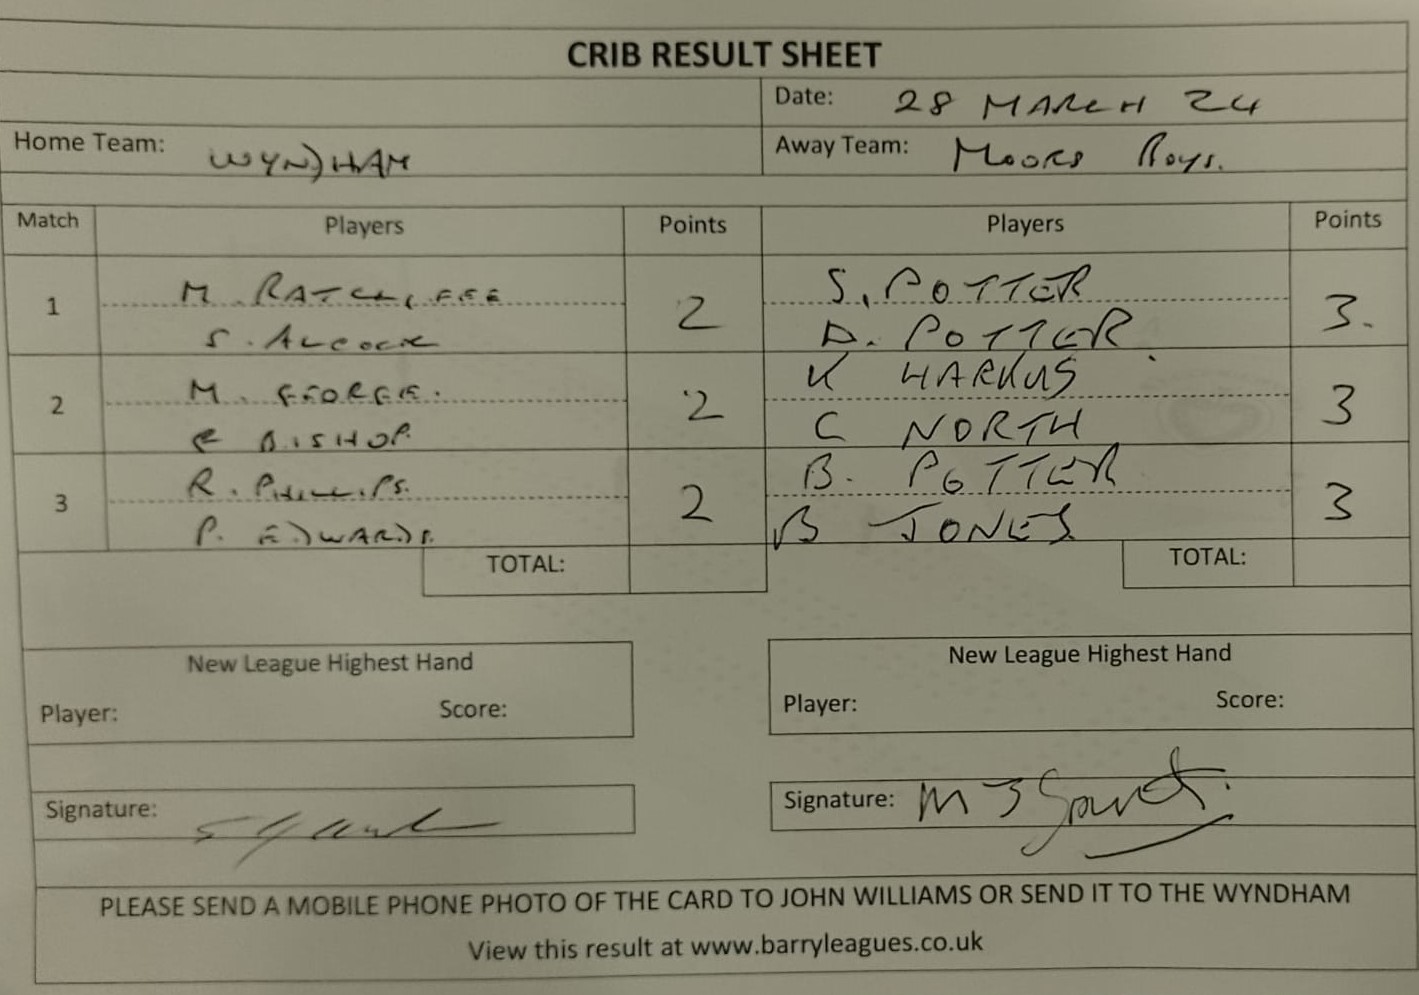 CRIB RESULT SHEET
Date: 28 MARCH 24
Home Team: WYNDHAM
Away Team: Moors Boys.
Match Players Points Players Points
M. RATCLIFFE S. POTTER
1 2 3.
S. ALCOCK D. POTTER
M. GEORGE. K HARKUS
2 2 3
C BISHOP. C NORTH
R. PHILLIPS. B. POTTER
3 2 3
P. EDWARDS. B JONES
TOTAL: TOTAL:
New League Highest Hand New League Highest Hand
Player: Score: Player: Score:
Signature: Signature: M J
PLEASE SEND A MOBILE PHONE PHOTO OF THE CARD TO JOHN WILLIAMS OR SEND IT TO THE WYNDHAM
View this result at www.barryleagues.co.uk